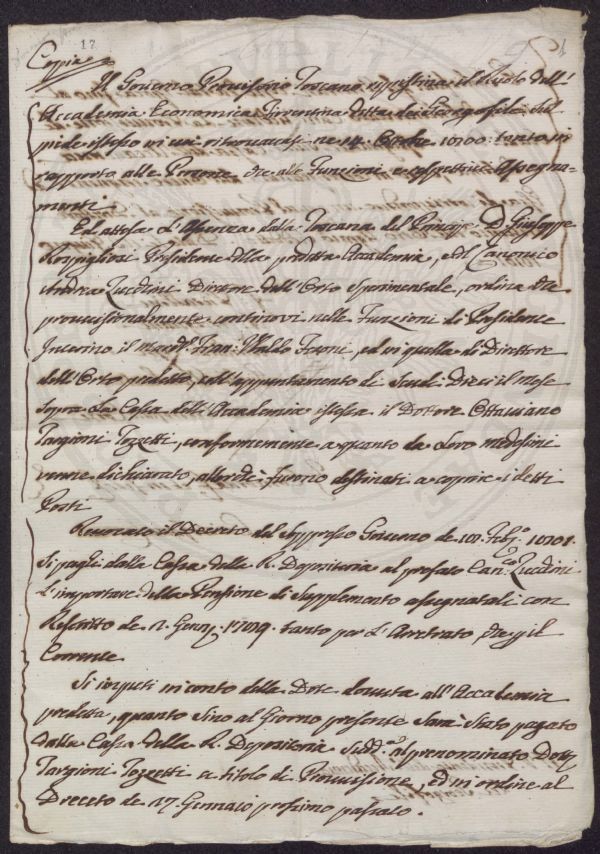 17
1
Copia
Il Governo Provvisorio Toscano ripristina il Ruolo dell'
Accademia Economica Fiorentina detta dei Georgofili sul
piede istesso in cui ritrovavasi ne 14. Ottobre 1800. tanto in
rapporto alle Persone, che alle Funzioni, e rispettivi Assegna-
menti.
Ed attesa l'Assenza dalla Toscana del Principe D. Giuseppe
Rospigliosi Presidente della predetta Accademia, e del Canonico
Andrea Zucchini Direttore dell'Orto Sperimentale, ordina che
provvisionalmente continovi nelle Funzioni di Presidente
Interino il March. Fran. Ubaldo Feroni, ed in quella di Direttore
dell'Orto predetto, coll'appuntamento di Scudi Dieci il Mese
sopra la Cassa dell'Accademia istessa il Dottore Ottaviano
Targioni Tozzetti, conformemente a quanto da Loro medesimi
venne dichiarato, allorchè furono destinati a coprire i detti
Posti
Revocato il Decreto del soppresso Governo de Febb. 1801.
si paghi dalla Cassa della R. Depositeria al prefato Can.co Zucchini
l'importare della Pensione di Supplemento assegnatali con
Rescritto de Genn. tanto per l'Arretrato, che p il
Corrente
Si imputi in conto della Dote dovuta all'Accademia
predetta, quanto sino al Giorno presente sarà stato pagato
dalla Cassa della R. Depositeria sudd. al prenominato Dott.
Targioni Tozzetti a titolo di Provvisione, ed in ordine al
Decreto de 17. Gennaio prossimo passato.